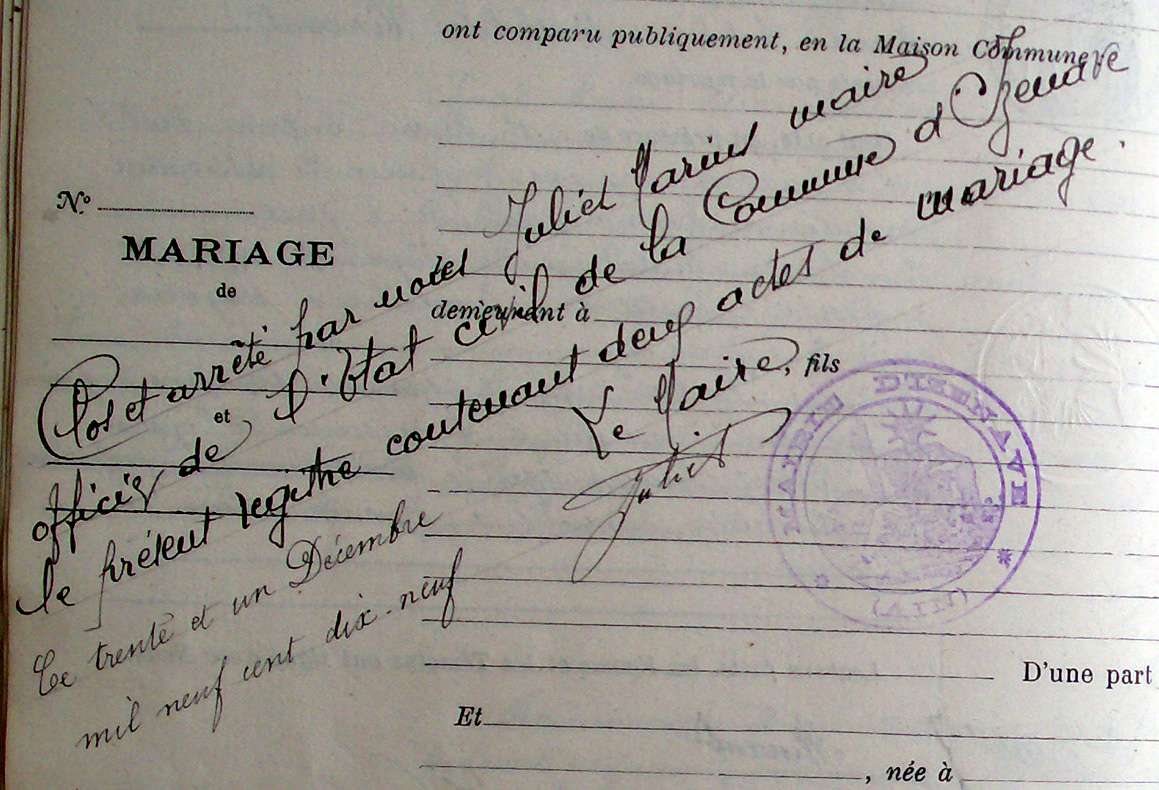 ont comparu publiquement, en la Maison Commune
N.º
MARIAGE
de
et
demeurant à
fils
Clos et arrêté par nous Juliet Marius maire
officier de l'état civil de la Commune d'Izenave
le présent registre contenant deux actes de mariage.
Ce trente et un Décembre
mil neuf cent dix-neuf
Le Maire,
Juliet
MAIRIE D'IZENAVE
(AIN)
D'une part
Et
, née à